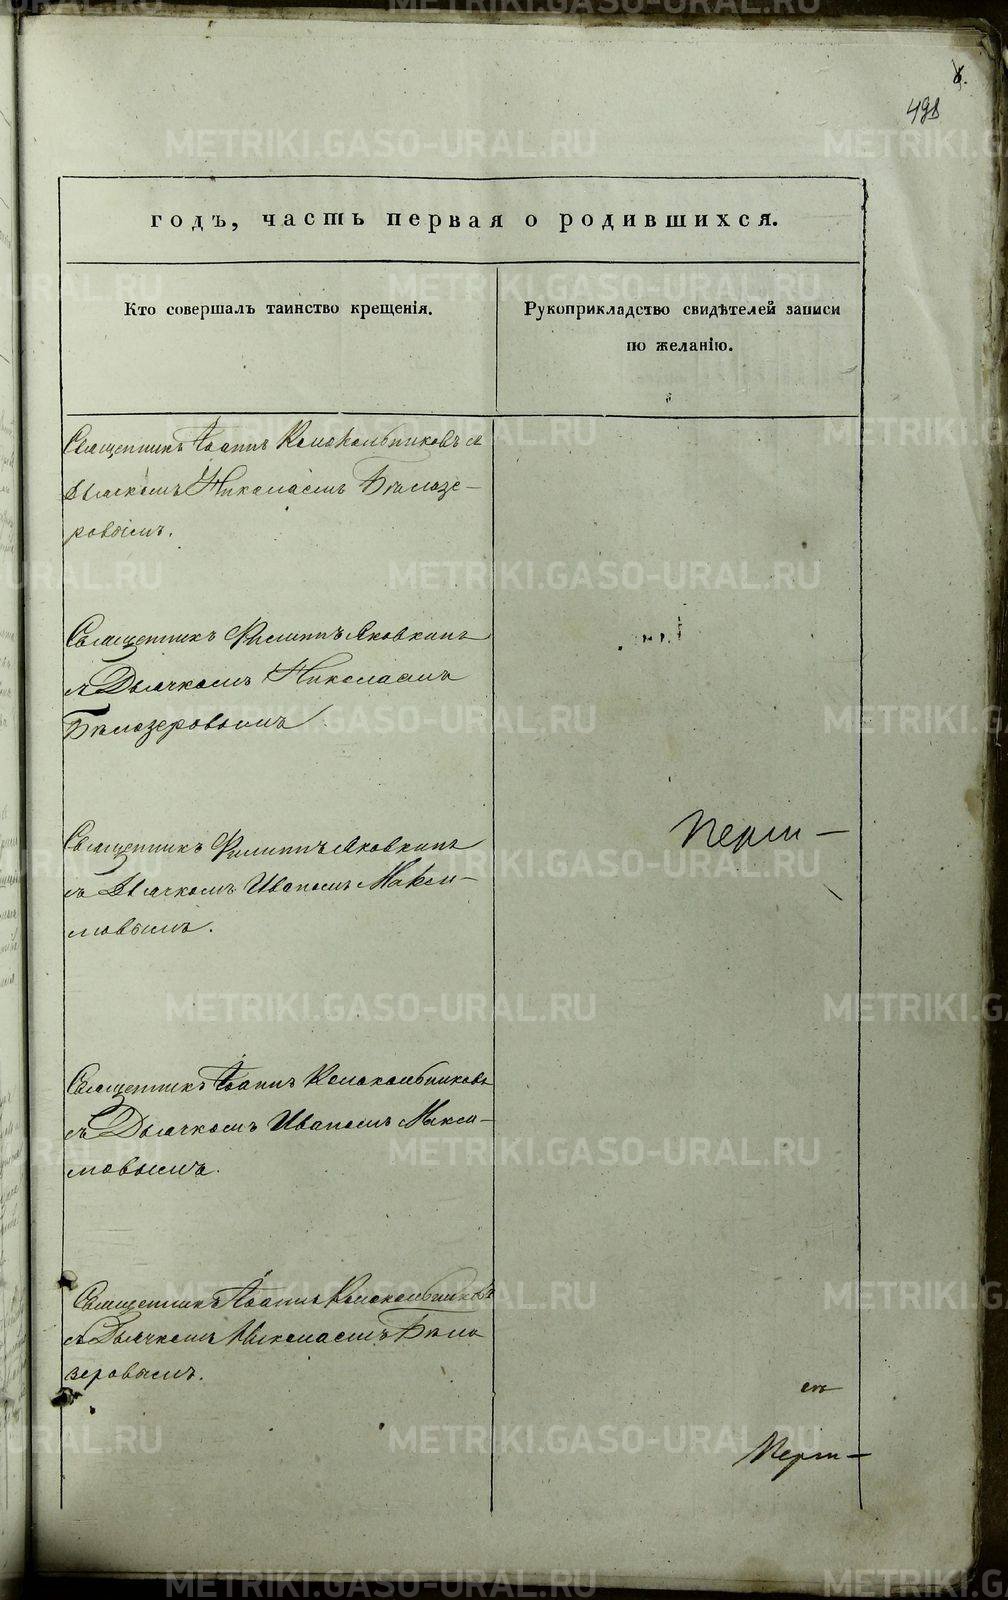 498
годъ, часть первая о родившихся.
Кто совершалъ таинство крещенія.
Рукоприкладство свидѣтелей записи
по желанію.
Священникъ Іоаннъ Колокольниковъ съ
Дьячкомъ Николаемъ Бѣлозе-
ровымъ.
Священникъ Филиппъ Яковкинъ
съ Дьячкомъ Николаемъ
Бѣлозеровымъ
Священникъ Филиппъ Яковкинъ
съ Дьячкомъ Иваномъ Макси-
мовымъ.
Священникъ Іоаннъ Колокольниковъ
съ Дьячкомъ Иваномъ Макси-
мовымъ.
Священникъ Іоаннъ Колокольниковъ
съ Дьячкомъ Николаемъ Бѣло
зеровымъ.
METRIKI.GASO-URAL.RU